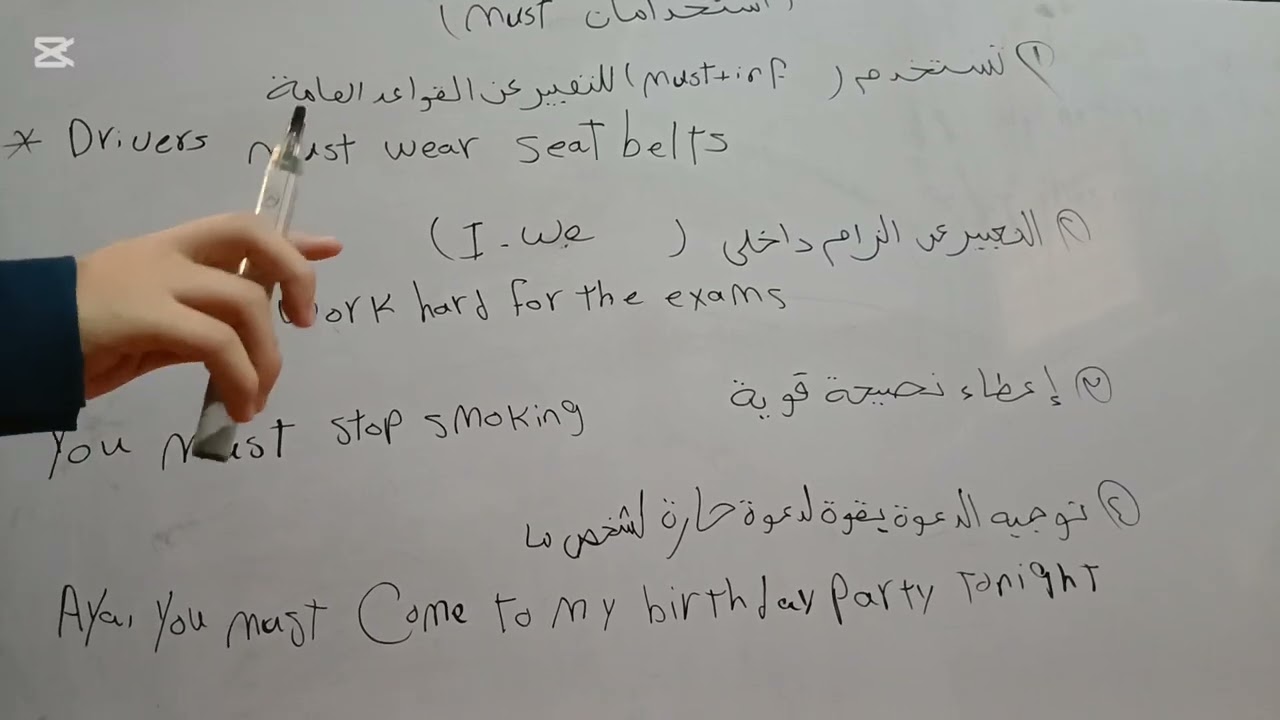 (استخدامات must)
① نستخدم (must+inf) للتعبير عن القواعد العامة
* Drivers must wear seat belts
② التعبير عن الزام داخلى (I - we)
work hard for the exams
③ إعطاء نصيحة قوية
You must stop smoking
④ توجيه الدعوة بقوة لدعوة حارة لشخص ما
Aya, you must Come to my birthday party tonight